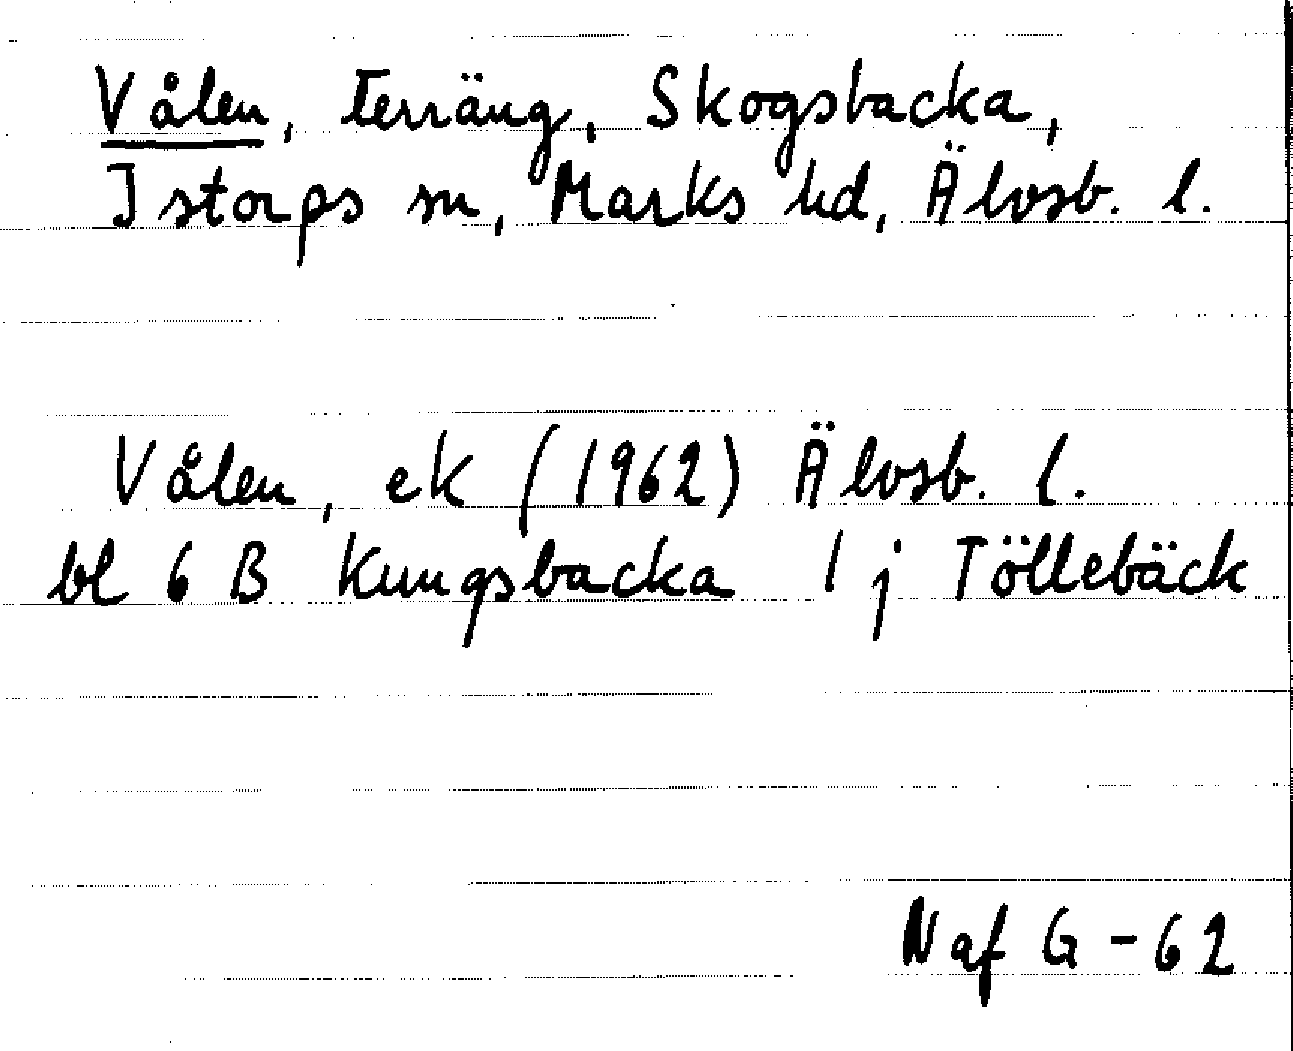 Vålen, terräng, Skogsbacka,
Istorps sn, Marks hd, Älvsb. l.
Vålen, ek (1962) Älvsb. l.
bl 6 B Kungsbacka 1 j Töllebäck
Naf G-62